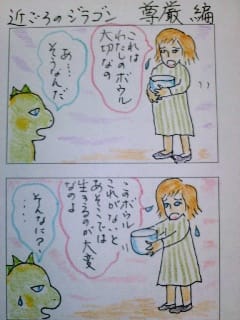 近ごろのジラゴン 尊厳 編
これは
わたしのボウル
大切なの
あ…
そうなんだ
このボウル
これがないと
あそこでは
生きるのが大変
なのよ
そんなに?…
…